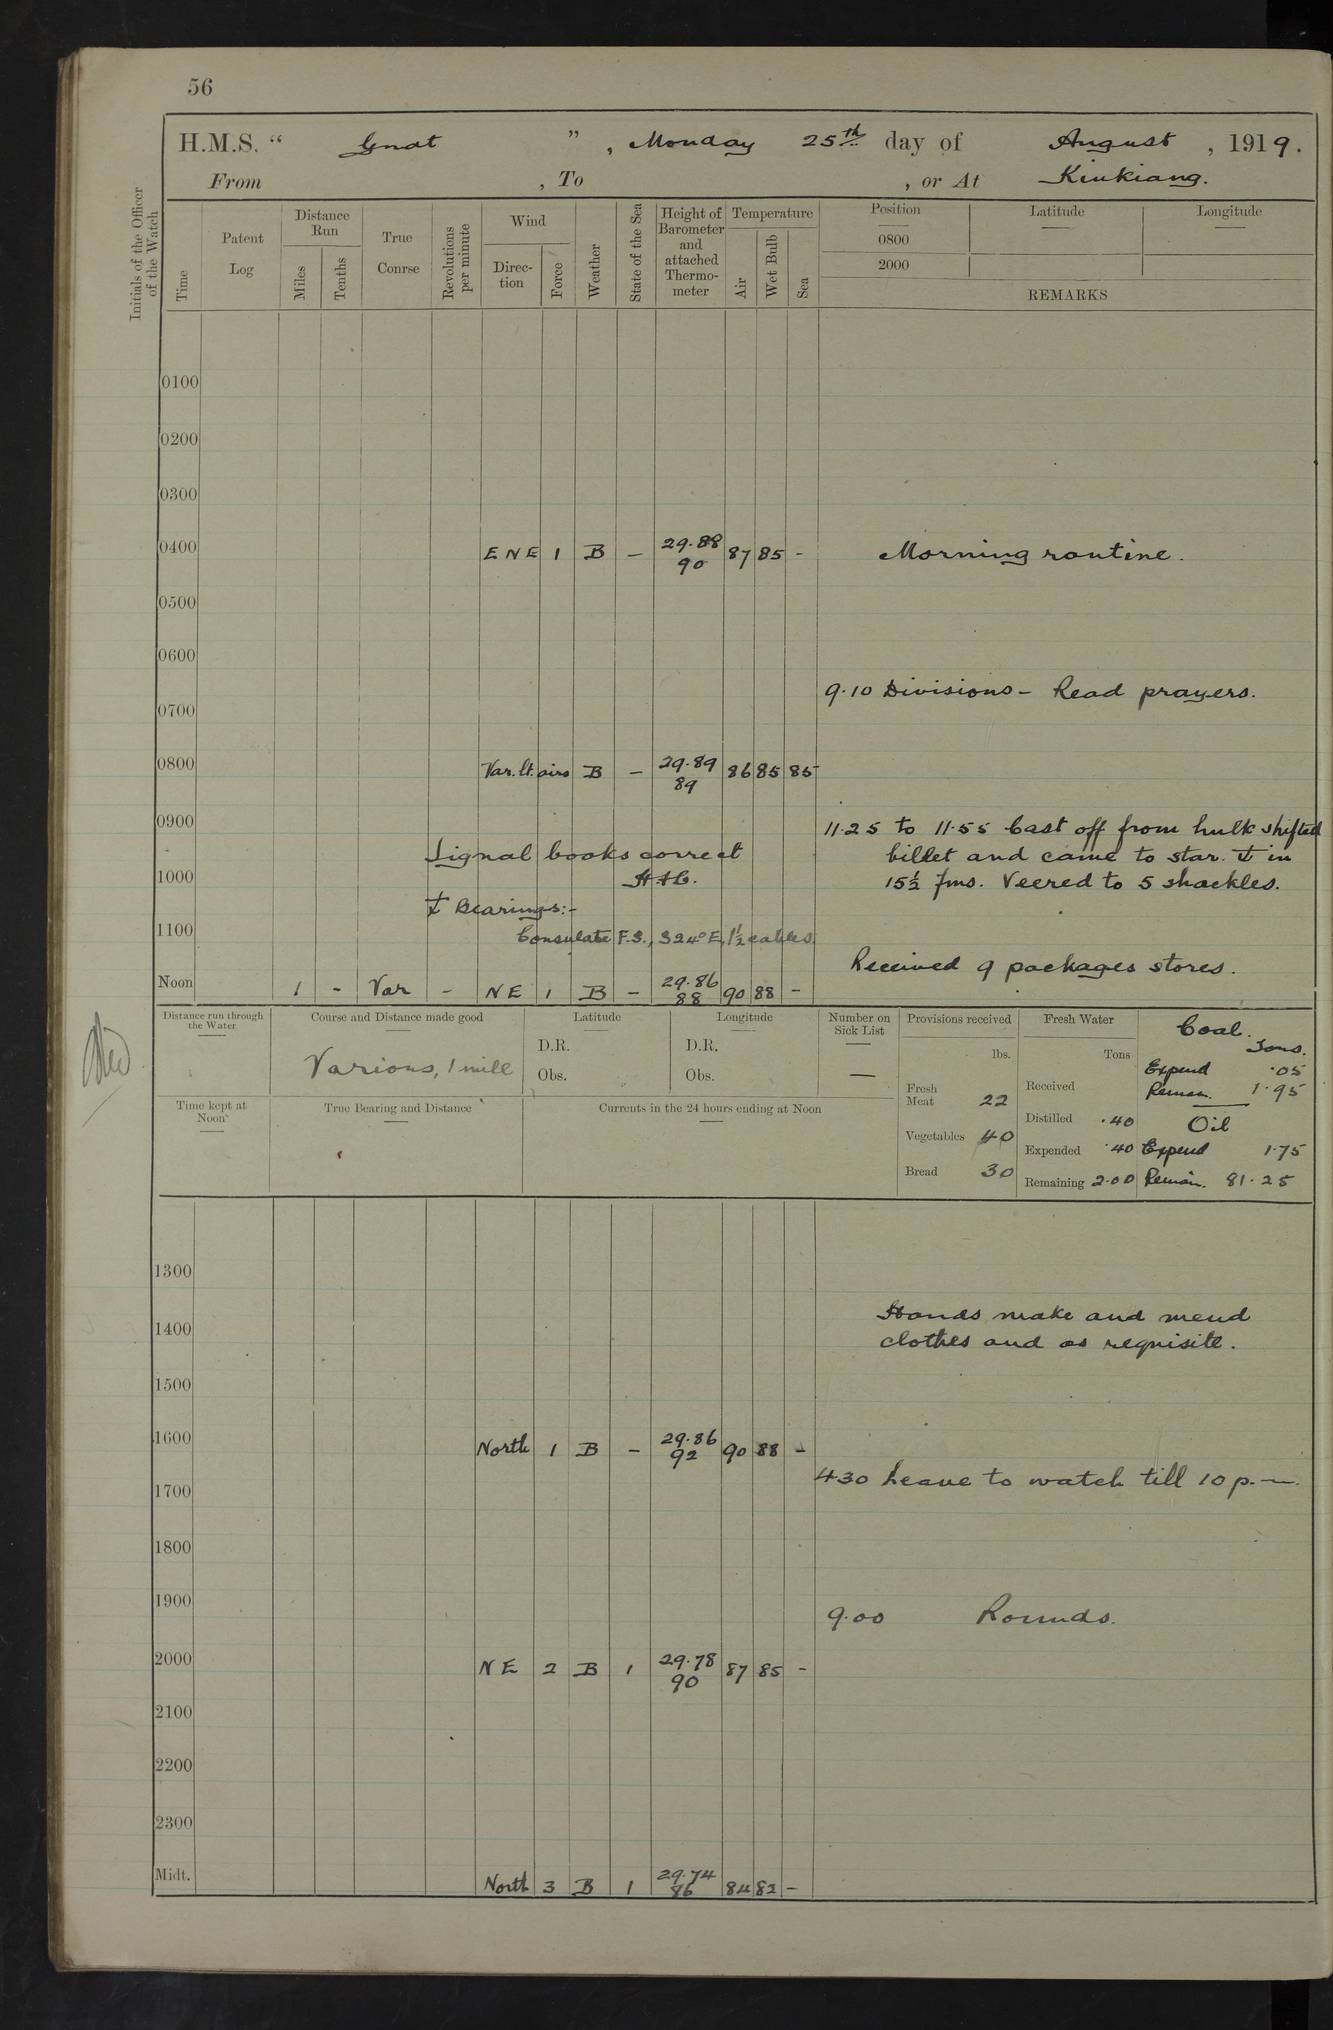 56
H.M.S. " Gnat ", Monday 25th day of August, 1919.
From , To , or At Kiukiang.
Initials of the Officer of the Watch
Time
Patent Log
Distance Run
Miles
Tenths
True Course
Revolutions per minute
Wind
Direc-tion
Force
Weather
State of the Sea
Height of Barometer and attached Thermo-meter
Temperature
Air
Wet Bulb
Sea
Position Latitude Longitude
0800
2000
REMARKS
0100
0200
0300
0400 ENE 1 B – 29.88 90 87 85 - Morning routine.
0500
0600
9.10 Divisions – Read prayers.
0700
0800 Var. lt. airs B – 29.89 89 86 85 85
0900
11.25 to 11.55 Cast off from hulk shifted
Signal books correct
billet and came to star. ⚓ in
1000
15½ fms. Veered to 5 shackles.
⚓ Bearings:-
1100
Consulate F.S., S24°E, 1½ cables.
Received 9 packages stores.
Noon 1 - Var – NE 1 B – 29.86 88 90 88 -
Distance run through the Water
Course and Distance made good
Various, 1 mile
Latitude
D.R.
Obs.
Longitude
D.R.
Obs.
Number on Sick List
—
Provisions received
lbs.
Fresh Meat 22
Vegetables 40
Bread 30
Fresh Water
Tons
Received
Distilled .40
Expended .40
Remaining 2.00
Coal.
Tons.
Expend .05
Remain. 1.95
Oil
Expend 1.75
Remain. 81.25
Time kept at Noon
True Bearing and Distance
Currents in the 24 hours ending at Noon
1300
Hands make and mend
1400
clothes and as requisite.
1500
1600 North 1 B – 29.86 92 90 88 -
430 Leave to watch till 10 p.m.
1700
1800
1900
9.00 Rounds.
2000 NE 2 B 1 29.78 90 87 85 -
2100
2200
2300
Midt. North 3 B 1 29.74 86 84 82 -